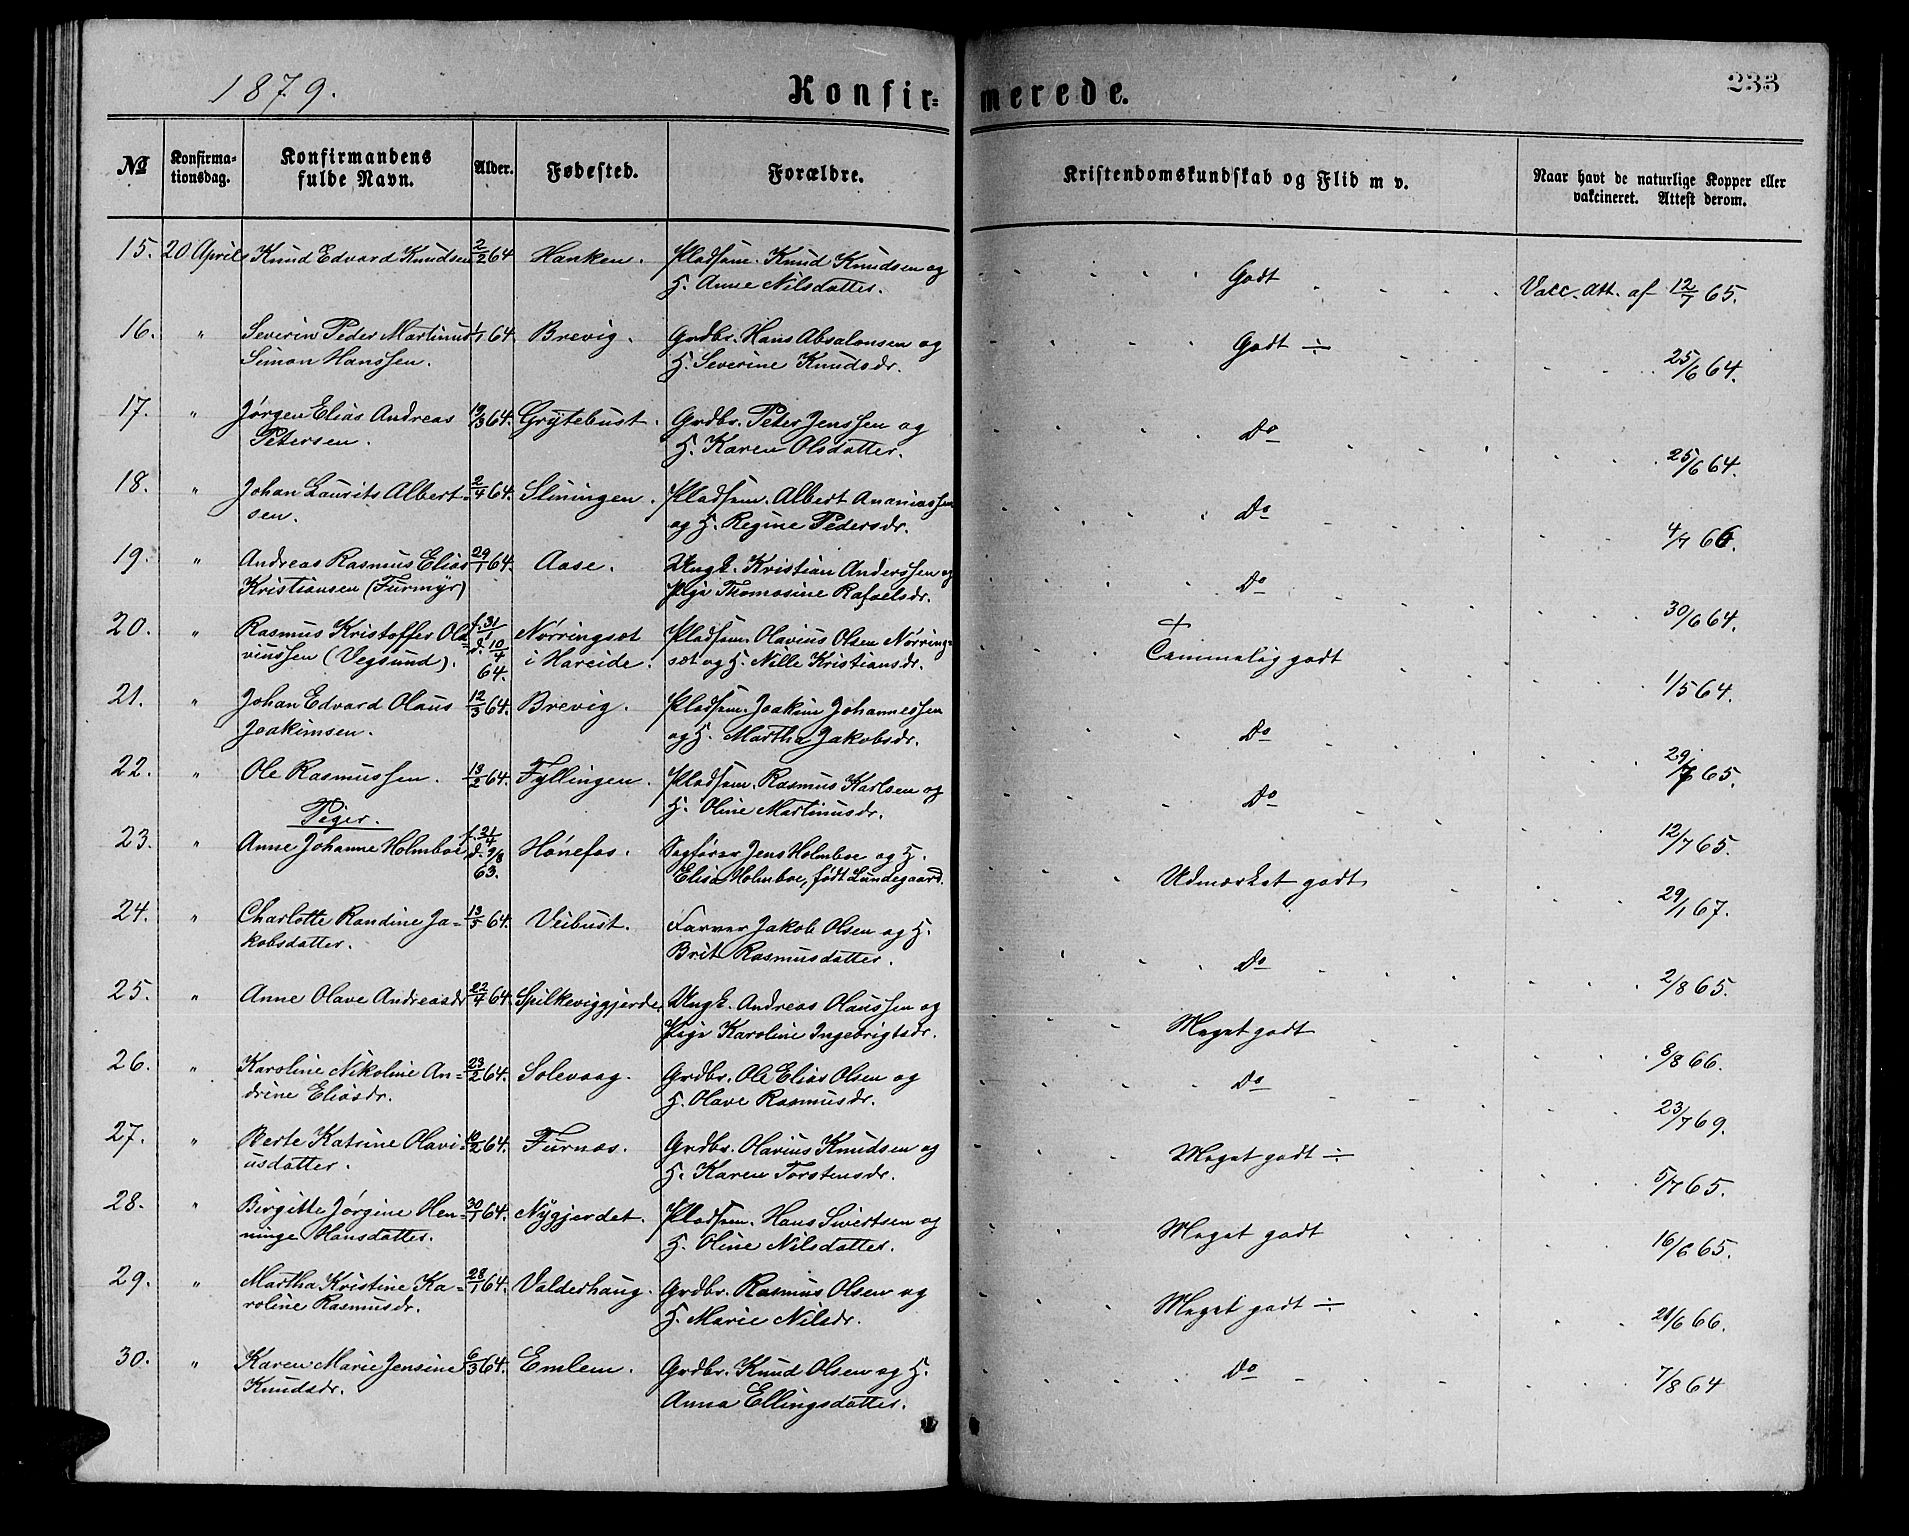 1879.
Konfir=
merede.
233
No
Konfirma-
tionsdag.
Konfirmandens
fulde Navn.
Alder.
Fødested.
Forældre.
Kristendomskundskab og Flid m v.
Naar havt de naturlige Kopper eller
vakcineret. Attest derom.
15. 20 April Knud Edvard Knudsen 2/2 64 Hanken. Pladsm. Knud Knudsen og
H. Anne Nilsdatter.
Godt
Vacc. att. af 12/7 65.
16. " Severin Peder Martinus 1/1 64. Brevig. Grdbr. Hans Absalonsen og
Simon Hanssen. H. Severine Knudsdr.
Godt ÷
25/6 64.
17. " Jørgen Elias Andreas 19/3 64. Grytebust. Grdbr. Peter Jenssen og
Petersen. H. Karen Olsdatter.
Do
25/6 64.
18. " Johan Laurits Albert- 2/4 64. Slinningen. Pladsm. Albert Ananiassen
sen. og H. Regine Pedersdr.
Do
4/7 66.
19. " Andreas Rasmus Elias 29/1 64. Aase. Ungk. Kristian Anderssen og
Kristiansen (Furmyr) Pige Thomasine Rafaelsdr.
Do
30/6 64.
20. " Rasmus Kristoffer Ola- f. 31/1 Nørringset Pladsm. Olavius Olsen Nørring-
viussen (Vegsund). d. 10/4 64. i Hareide. set og H. Nille Kristiansdr.
+
Temmelig godt
1/5 64.
21. " Johan Edvard Olaus 12/3 64. Brevig. Pladsm. Joakim Johannessen
Joakimsen. og H. Martha Jakobsdr.
Do
29/7 65.
22. " Ole Rasmussen. 13/2 64. Fyllingen. Pladsm. Rasmus Karlsen og
H. Oline Martinusdr.
Do
12/7 65.
Piger.
23. " Anne Johanne Holmboe f. 21/4 d. 9/8 63. Hønefos. Sagfører Jens Holmboe og H.
Elisa Holmboe, født Lundegaard.
Udmærket godt
29/1 67.
24. " Charlotte Randine Ja- 13/5 64. Veibust. Farver Jakob Olsen og H.
kobsdatter. Brit Rasmusdatter.
Do
2/8 65.
25. " Anne Olave Andreasdr 22/4 64. Spilkeviggjerde. Ungk. Andreas Olaussen og
Pige Karoline Ingebrigtsdr.
Meget godt
8/8 66.
26. " Karoline Nikoline An- 23/2 64. Solevaag. Grdbr. Ole Elias Olsen og
drine Eliasdr. H. Olave Rasmusdr.
Do
23/7 69.
27. " Berte Katrine Olavi- 10/2 64. Furnes. Grdbr. Olavius Knudsen og
usdatter. H. Karen Torstensdr.
Meget godt ÷
5/7 65.
28. " Birgitte Jørgine Hen- 30/1 64. Nygjerdet. Pladsm. Hans Sivertsen og
ninge Hansdatter. H. Oline Nilsdatter.
Meget godt
16/6 65.
29. " Martha Kristine Ka- 28/1 64. Valderhaug. Grdbr. Rasmus Olsen og
roline Rasmusdr. H. Marie Nilsdr.
Meget godt ÷
21/6 66.
30. " Karen Marie Jensine 6/3 64. Emlem. Grdbr. Knud Olsen og H.
Knudsdr. Anna Ellingsdatter.
Do
7/8 64